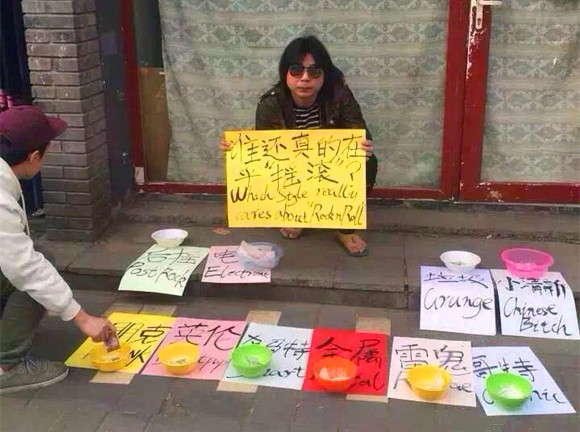 谁还真的在
乎"摇滚"?
Which Style really
cares about "Rock'n'Roll
后摇
Post Rock
电
Electronic
垃圾
Grunge
小清新
Chinese
Bitch
朋克
英伦
金属
雷鬼
哥特